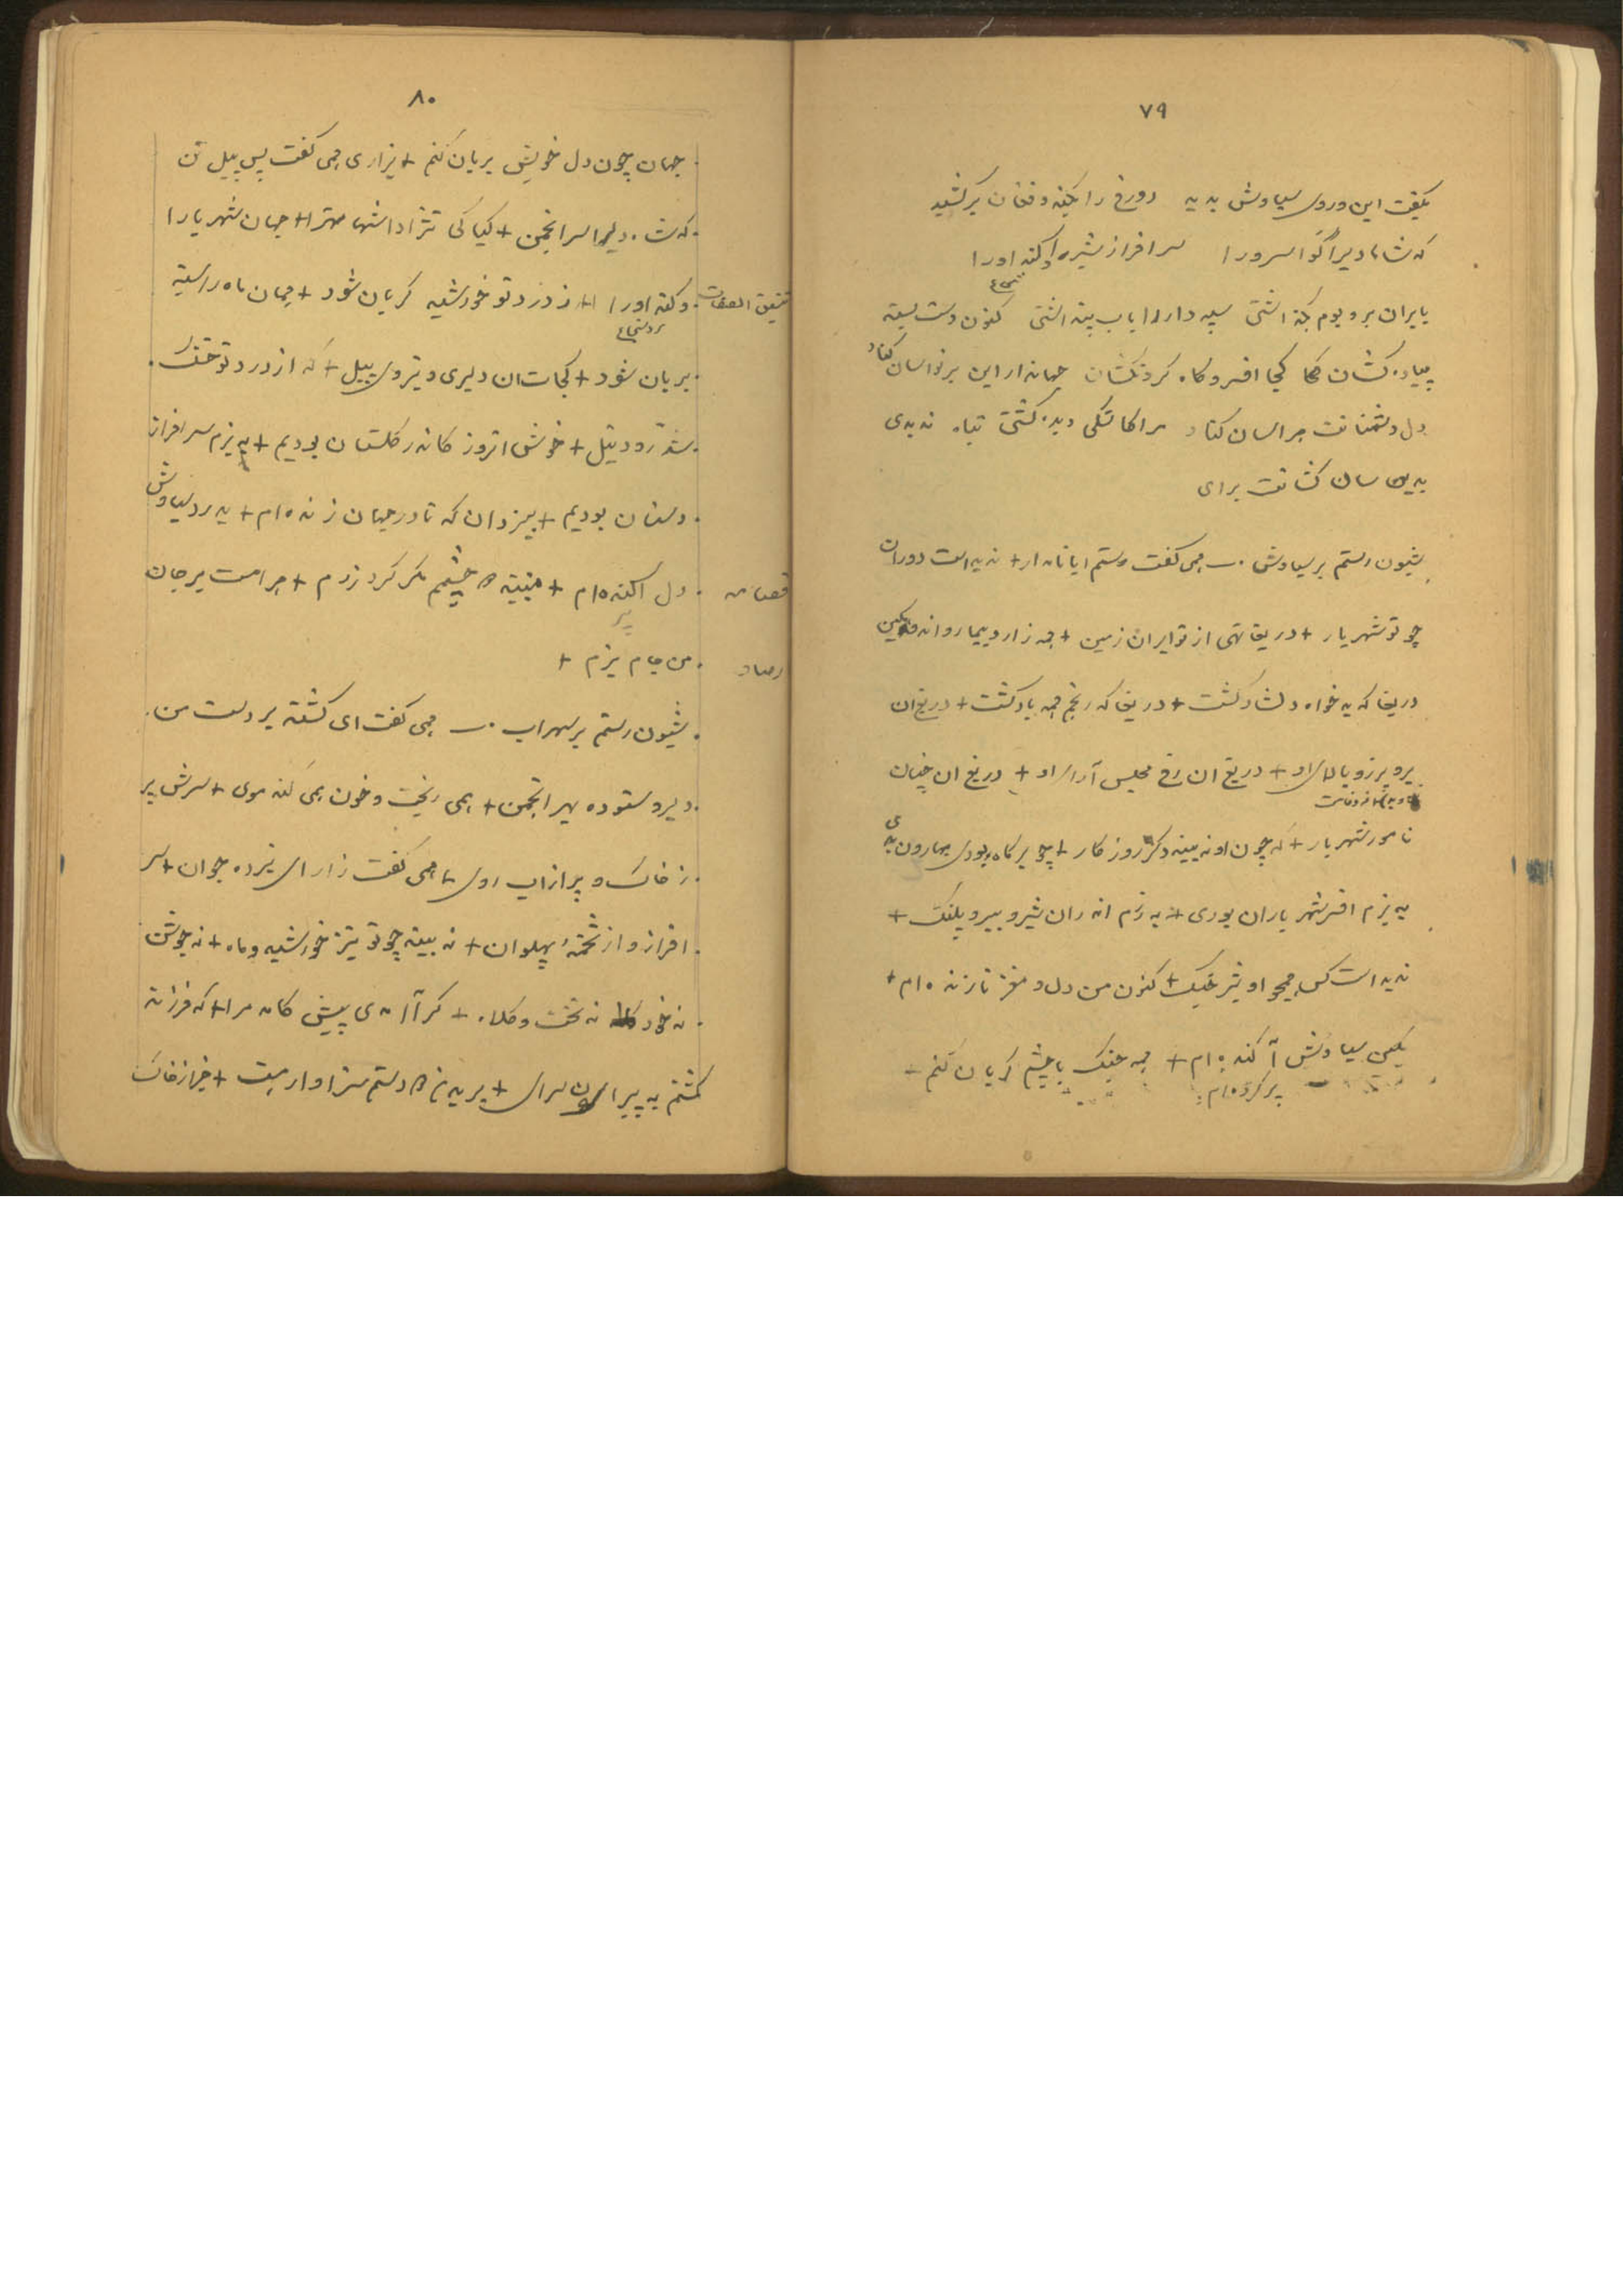 ۷۹
بگفت این و روی سیاوش بدید دو رخ را بکند و فغان برکشید
که شاها دلیرا گوا سرورا سرافراز شیرا و کند اورا
بایران بر و بوم بگذاشتی سپه دار را باب پنداشتی کنون دست بسته
پیاده کشان کجا افسر و گاه گردنکشان جهاندار این بر تو اسان کناد
دل دشمنانت هراسان کناد مرا کاشکی دیده گشتی تباه ندیدی
بدین سان کشانت برای
شیون رستم بر سیاوش ـ همی گفت رستم ایا نامدار + ندیده است دوران
چو تو شهریار + دریغا تهی از تو ایران زمین + همه زار و بیمار و اندوهگین
دریغا که بدخواه دلشاد گشت + دریغا که رنجم همه باد گشت + دریغ ان
بر و برز و بالای او + دریغ ان رخ مجلس آرای او + دریغ ان چنان
نامور شهریار + که چون او نبیند دگر روزگار + چو بر گاه بودی بهاران بدی
به بزم افسر شهریاران بودی + به رزم اندران شیر و ببر و پلنگ +
ندیده است کس همچو او تیز چنگ + کنون من دل و مغز تا زنده ام +
بکین سیاوش آکنده ام + همه جنگ با چشم گریان کنم +
پر کرده ام
۸۰
جهان چون دل خویش بریان کنم + بزاری همی گفت پس پیل تن
که شاها دلیرا سر انجمن + کیا کی نژادا شها مهترا + جهان شهریارا
تنسیق الصفات وکند اورا + ز درد تو خورشید گریان شود + همان ماه را سینه
بریان شود + کجات ان دلیری و نیروی پیل + که از درد تو خشک
شد رود نیل + خوش انروز کاندر گلستان بودیم + به بزم سرافراز
دستان بودیم + بیزدان که تا در جهان زنده ام + به درد سیاوش
دل اکنده ام + نبیند دو چشمم مگر گرد رزم + حرامست بر جان
من جام بزم +
شیون رستم بر سهراب ـ همی گفت ای کشته بر دست من
دلیر و ستوده بهر انجمن + همی ریخت خون و همی کند موی + سرش پر
ز خاک و پر از اب روی + همی گفت زار ای نبرده جوان + سر
افراز و از تخمهٔ پهلوان + نبیند چو تو نیز خورشید و ماه + نه جوشن
نه خود نه تخت و کلاه + کرا آمد ی پیش کامد مرا + که فرزند
کشتم به پیران سرای + بریدن دو دستم سزاوار هست + جز از خاک